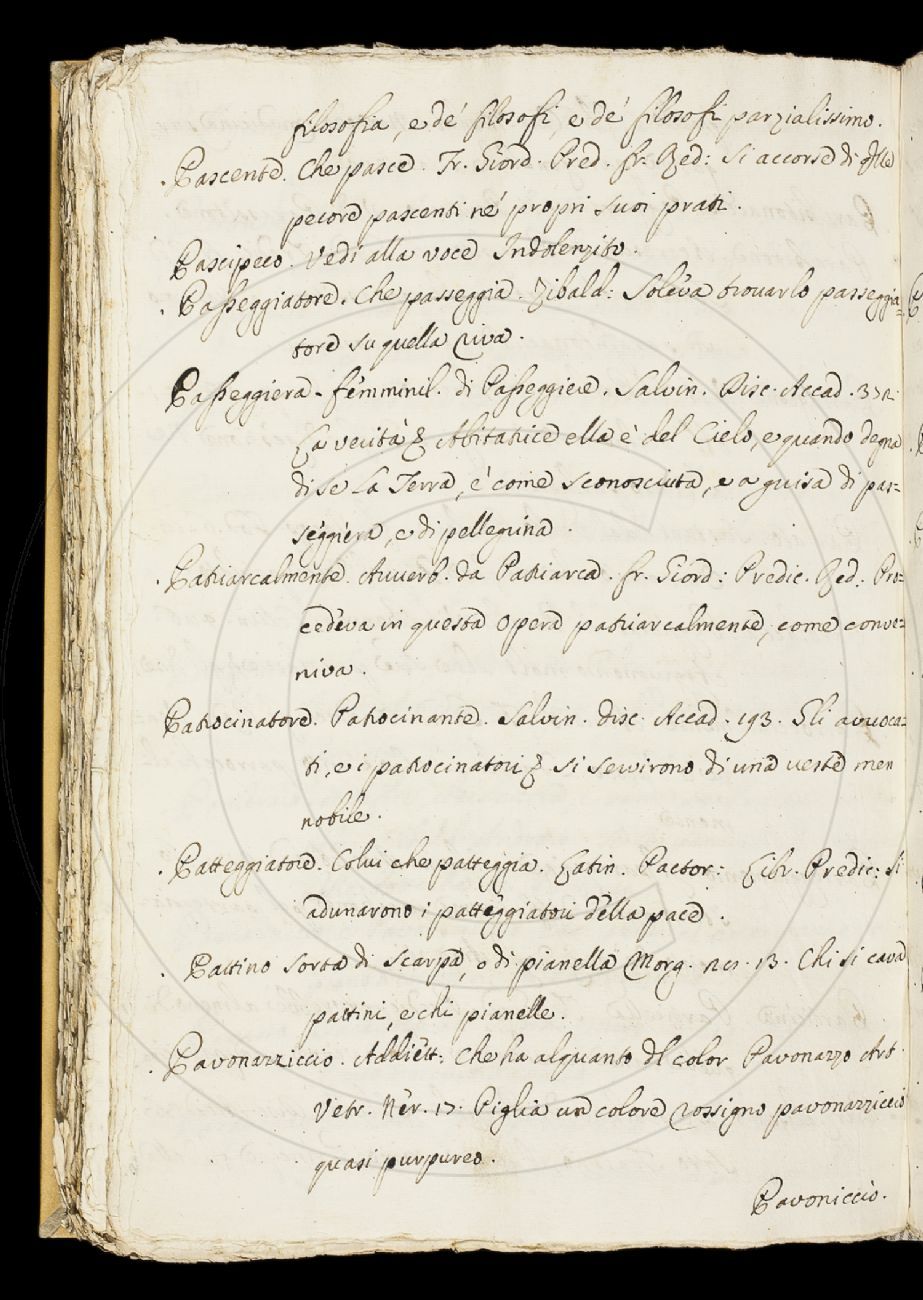 filosofia, e dé filosofi, e dé filosofi parzialissimo.
. Pascente. Che pasce. Fr. Giord. Pred. fr. Red: Si accorse di qlle
pecore pascenti né propri suoi prati.
Pascipeco. Vedi alla voce Indolenzito.
. Passeggiatore. Che passeggia. Zibald: Soleva trovarlo passeggia=
tore su quella riva.
Passeggiera. fémminil. di Passeggiere. Salvin. Disc. Accad.
La verità & Abitatrice ella è del Cielo, e quando degna
di se La Terra, é come sconosciuta, e a guisa di pas=
seggiera, e di pellegrina.
. Patriarcalmente. Avverb. da Patriarca. fr. Giord: Predic. Red: Pro=
cedeva in questa opera patriarcalmente, come conve=
niva.
Patrocinatore. Patrocinante. Salvin. disc. Accad. 193. Gli avvoca=
ti, e i patrocinatori & si servirono di una veste men
nobile.
. Patteggiatore. Colui che patteggia. Latin. Pactor: Libr. Predic: Si
adunarono i patteggiatori della pace.
. Pattino sorta di Scarpa, o di pianella Morg. 13. Chi si cava
pattini, e chi pianelle.
. Pavonazziccio. Addiett: Che ha alquanto dl color Pavonazzo Art.
Vetr. Ner. 17. Piglia un colore rossigno pavonazziccio
quasi purpureo.
Pavoniccio.